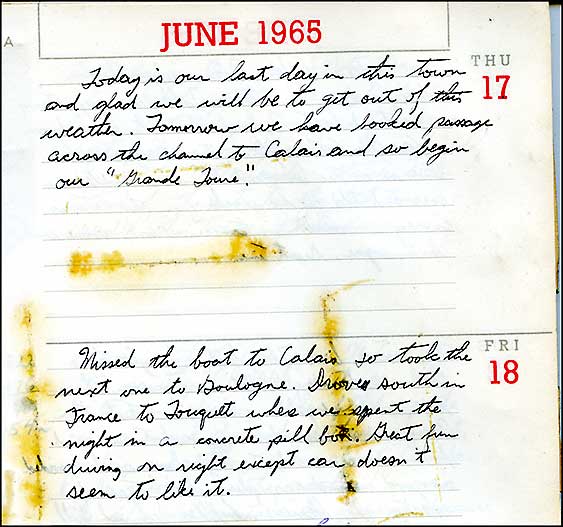 A
JUNE 1965
THU
17
Today is our last day in this town
and glad we will be to get out of this
weather. Tomorrow we have booked passage
across the channel to Calais and so begin
our "Grande Toure."
FRI
18
Missed the boat to Calais so took the
next one to Boulogne. Drove south in
France to Touquet where we spent the
night in a concrete pill box. Great fun
driving on right except car doesn't
seem to like it.